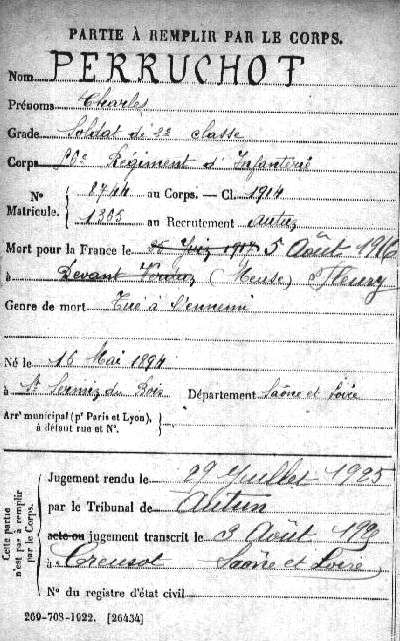 PARTIE À REMPLIR PAR LE CORPS.
Nom PERRUCHOT
Prénoms Charles
Grade Soldat de 2e classe
Corps Régiment d'Infanterie
No Matricule. 8744 au Corps. — Cl. 1914
1305 au Recrutement Autun
Mort pour la France le 5 Août 1916
à Devant Verdun (Meuse) Fleury
Genre de mort Tué à l'ennemi
Né le 16 Mai 1894
à St Sernin du Bois Département Saône et Loire
Arrt municipal (pr Paris et Lyon),
à défaut rue et No.
Cette partie
n'est pas à remplir
par le Corps.
Jugement rendu le 29 Juillet 1925
par le Tribunal de Autun
acte ou jugement transcrit le 3 Août
à Creusot Saône et Loire
No du registre d'état civil
269-708-1922. [26434]